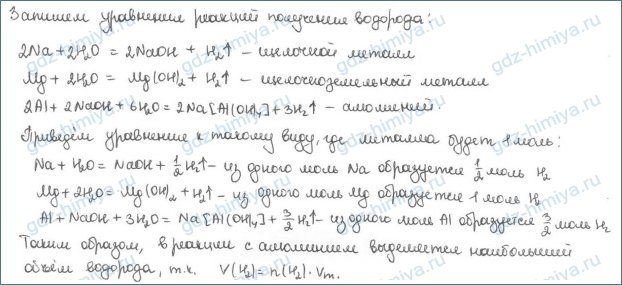 Запишем уравнения реакций получения водорода:
2Na + 2H₂O = 2NaOH + H₂↑ – щелочной металл
Mg + 2H₂O = Mg(OH)₂ + H₂↑ – щелочноземельный металл
2Al + 2NaOH + 6H₂O = 2Na[Al(OH)₄] + 3H₂↑ – алюминий.
Приведём уравнения к такому виду, где металла будет 1 моль:
Na + H₂O = NaOH + ½H₂↑ – из одного моль Na образуется ½ моль H₂
Mg + 2H₂O = Mg(OH)₂ + H₂↑ – из одного моль Mg образуется 1 моль H₂
Al + NaOH + 3H₂O = Na[Al(OH)₄] + 3/2 H₂↑ – из одного моль Al образуется 3/2 моль H₂
Таким образом, в реакции с алюминием выделяется наибольший
объём водорода, т.к. V(H₂) = n(H₂)·Vm.
gdz-himiya.ru